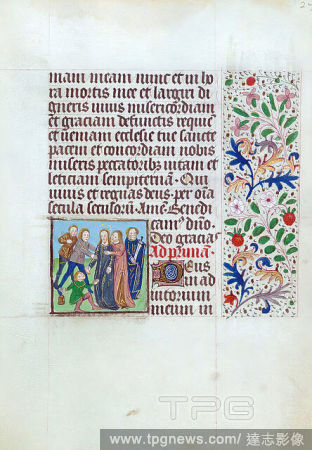 mam meam nunc et in ho
ra mortis mee et largiri di
gneris vivis misericordiam
et graciam defunctis requie
et veniam ecclesie tue sancte
pacem et concordiam nobis
miseris peccatoribz vitam et
leticiam sempiternam. Qui
vivis et regnas deus per oĩa
secula seculorũ. Amẽ. Benedi
cam9 dño.
Deo gracias
Ad primã.
Deus
in ad
iutorium
meum in
TPG
www.tpgnews.com/ 達志影像